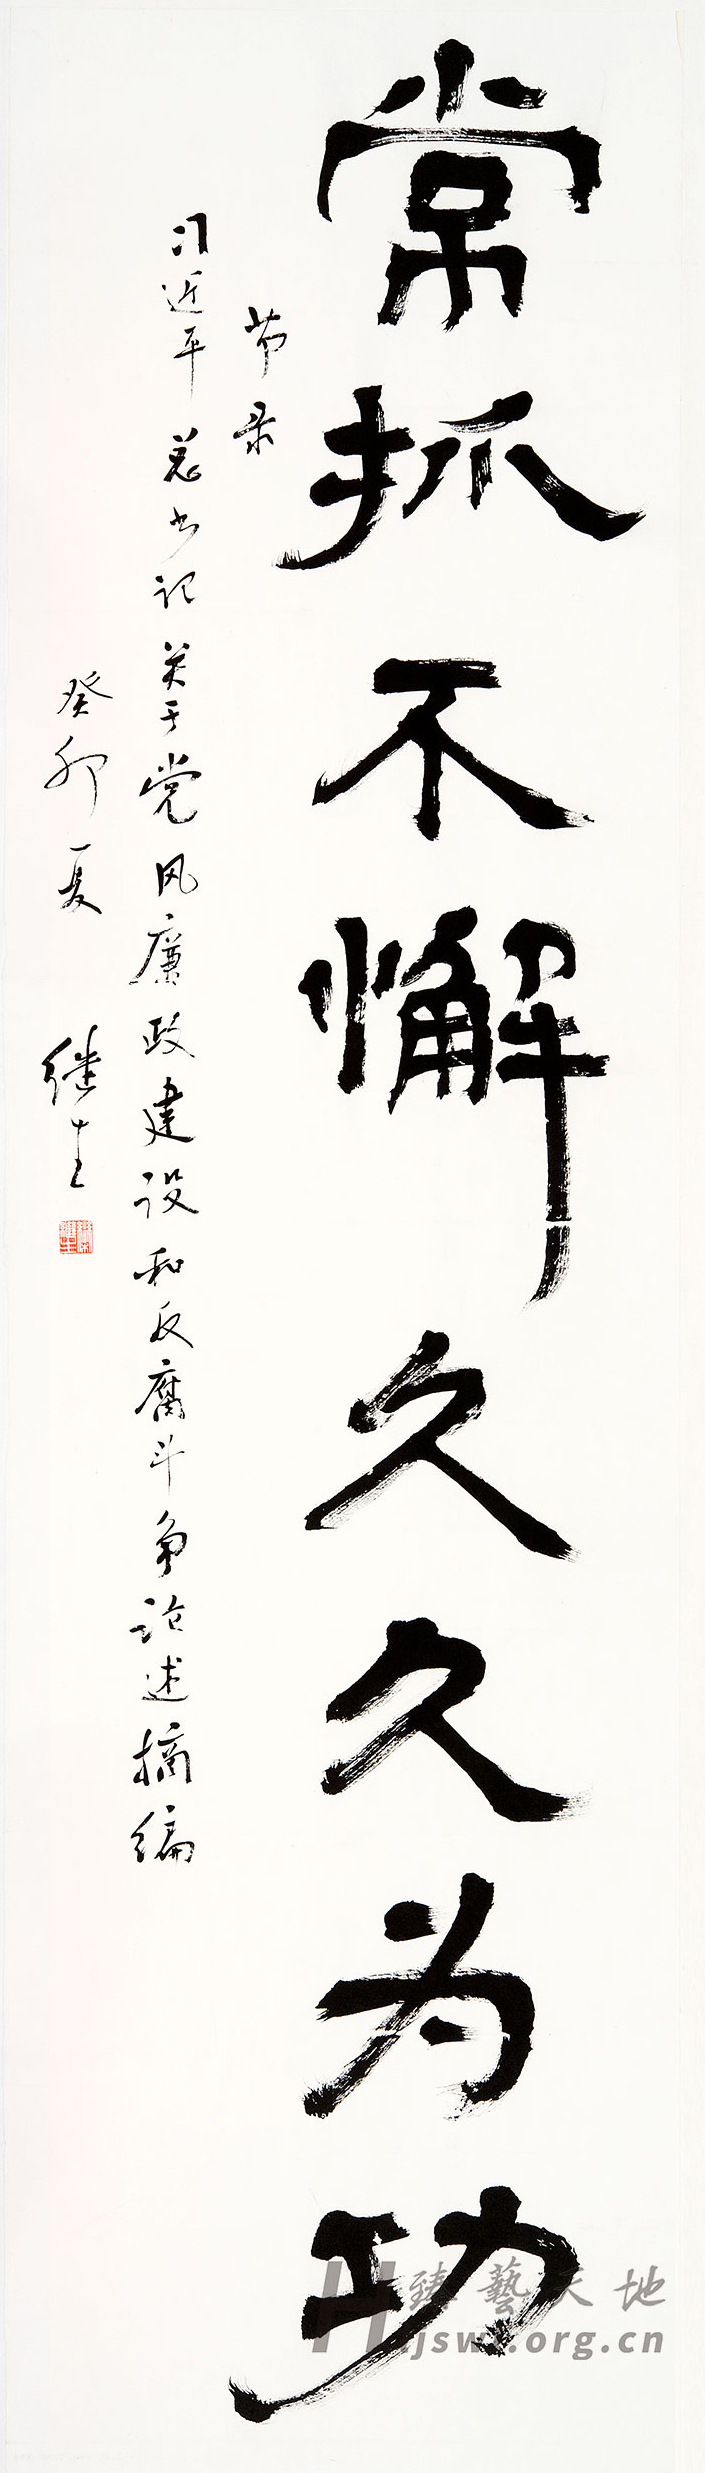 常抓不懈久久为功
节录
习近平总书记关于党风廉政建设和反腐斗争论述摘编
癸卯夏
继生
臻藝天地
jswx.org.cn